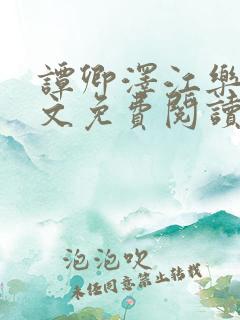 譚卿澤江樂
文免費閱讀
泡泡吹
未經同意禁止轉載